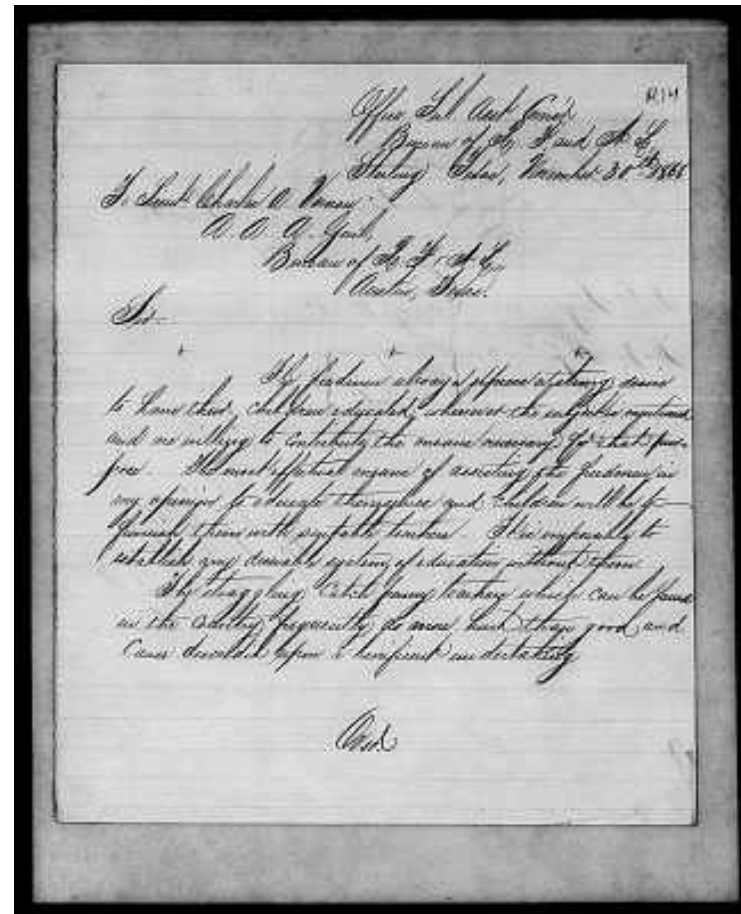 R14
Office Sub Asst Comr
Bureau of R. F. and A. L.
Sterling Texas, November 30th 1866
To Lieut Charles
A. A. A. Genl,
Bureau of R. F. & A. L.
Austin, Texas.
Sir.
The freedmen always express a strong desire
to have their children educated, whenever the subject is mentioned
and are willing to contribute the means necessary for that pur-
pose. The most effectual means of assisting the freedmen in
my opinion to educate themselves and children will be to
furnish them with suitable teachers. It is impossible to
establish any desirable system of education without them
The straggling, catch penny teachers which can be found
in the country frequently do more hurt than good, and
cause discredit upon a beneficent undertaking